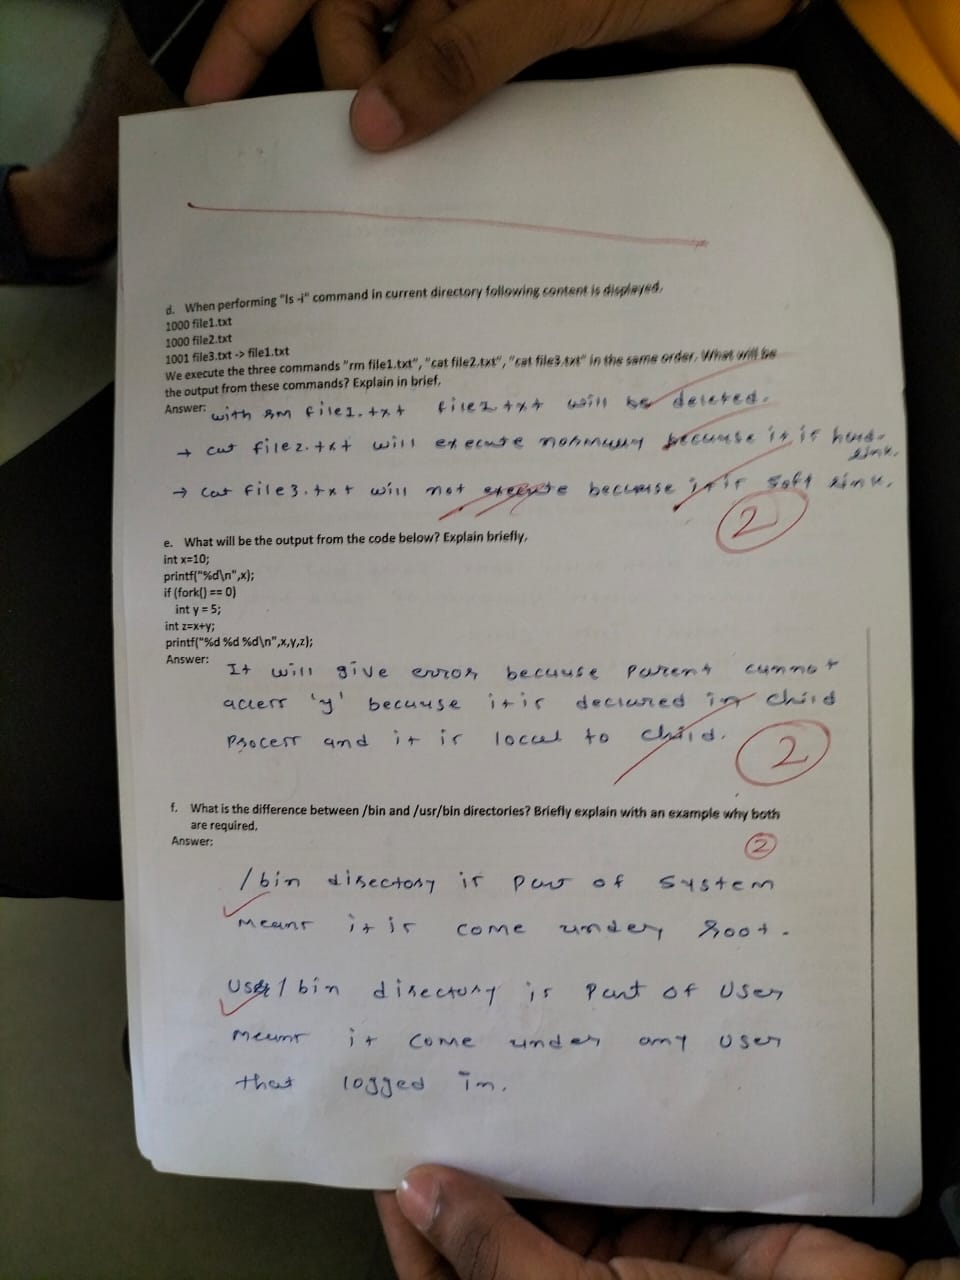 d. When performing "ls -i" command in current directory following content is displayed.
1000 file1.txt
1000 file2.txt
1001 file3.txt -> file1.txt
We execute the three commands "rm file1.txt", "cat file2.txt", "cat file3.txt" in the same order. What will be
the output from these commands? Explain in brief.
Answer: with rm file1.txt file1.txt will be deleted.
→ cat file2.txt will execute normally because it is hard-
link.
→ cat file3.txt will not execute because it is soft link.
2
e. What will be the output from the code below? Explain briefly.
int x=10;
printf("%d\n",x);
if (fork() == 0)
int y = 5;
int z=x+y;
printf("%d %d %d\n",x,y,z);
Answer: It will give error because parent cannot
access 'y' because it is declared in child
process and it is local to child.
2
f. What is the difference between /bin and /usr/bin directories? Briefly explain with an example why both
are required.
Answer:
2
/bin directory is part of system
means it is come under root.
/bin directory is part of user
means it come under any user
that logged in.